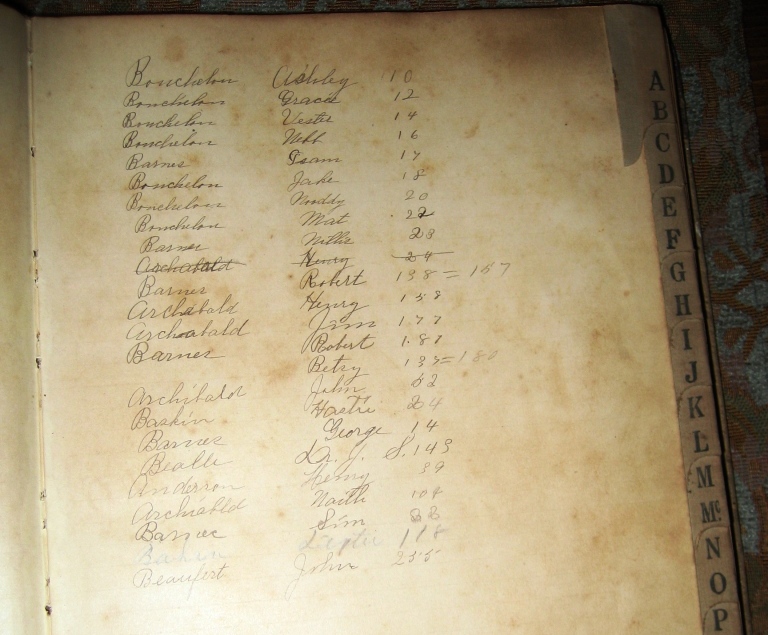 Bouchelon Ashley 10
Bouchelon Grace 12
Bouchelon Vester 14
Bouchelon Webb 16
Barnes Isam 17
Bouchelon Jake 18
Bouchelon Noddy 20
Bouchelon Mat 22
Barnes Willie 23
Archabald Henry 24
Barnes Robert 138 = 157
Archabald Henry 158
Archabald Jim 177
Barnes Robert 187
Betsy 137=180
Archibald John 52
Baskin Hattie 24
Barnes George 14
Bealle Dr. J. S. 143
Anderson Henry 89
Archiebld 104
Barnes Sim 88
118
Beaufert John 255
A
B
C
D
E
F
G
H
I
J
K
L
M
Mc
N
O
P